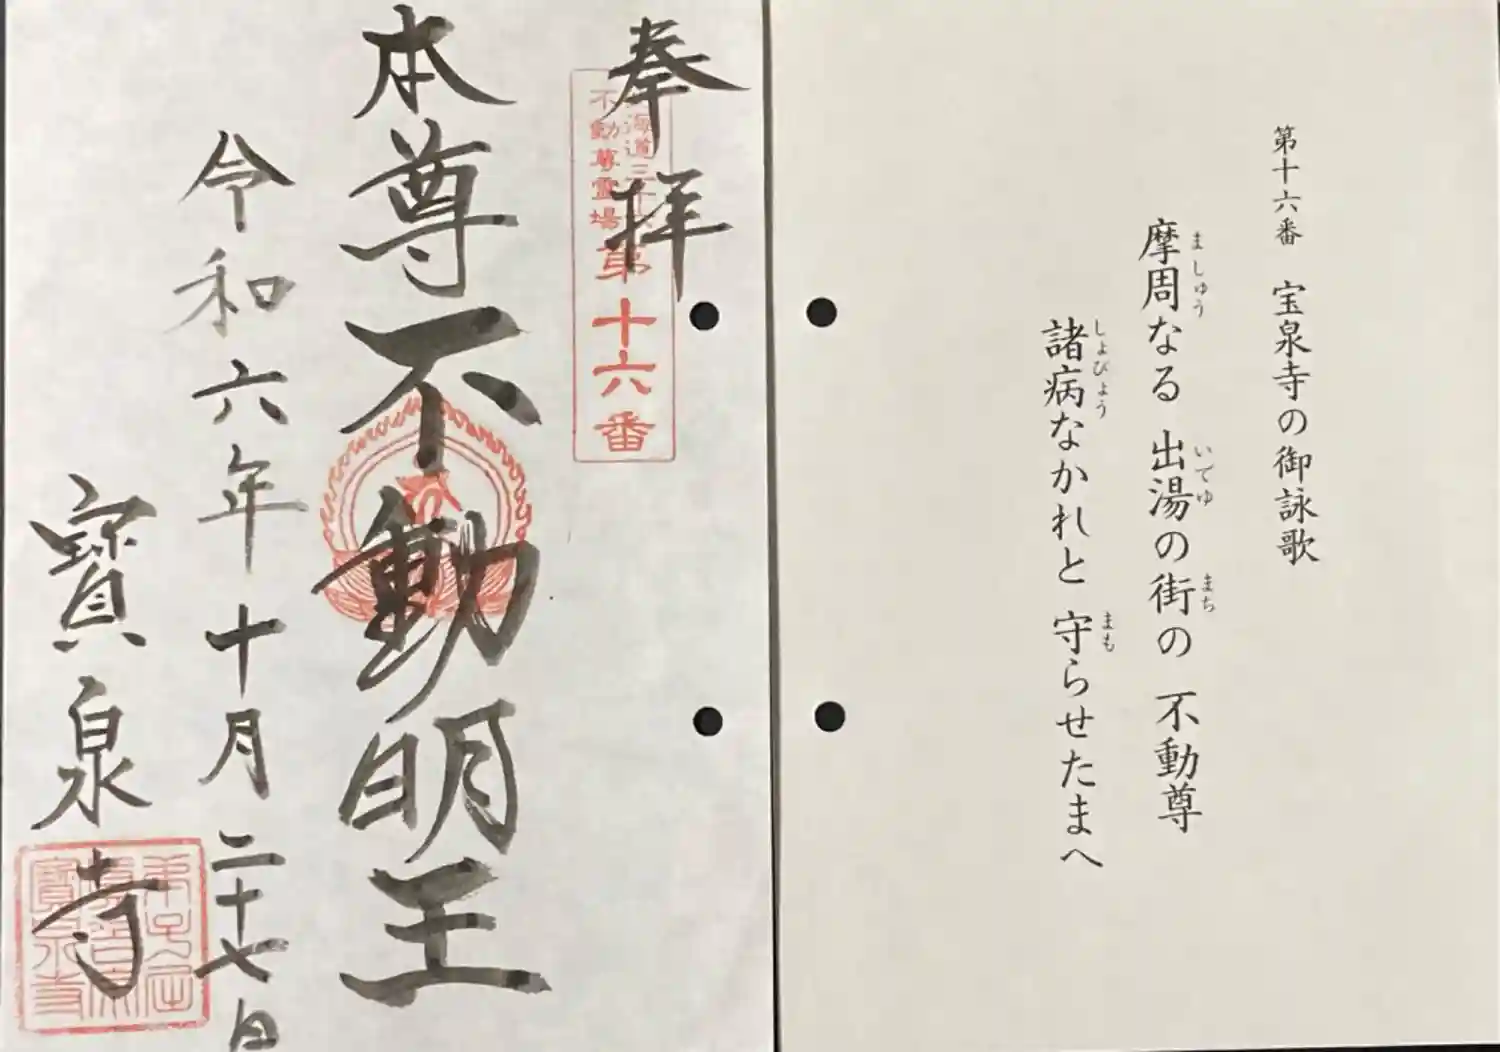 第十六番 宝泉寺の御詠歌
摩周なる 出湯の街の 不動尊
ましゅう いでゆ まち
諸病なかれと 守らせたまへ
しょびょう まも
奉拝
海道三十六
不動尊霊場第十六番
本尊不動明王
令和六年十月二十七日
寳泉寺